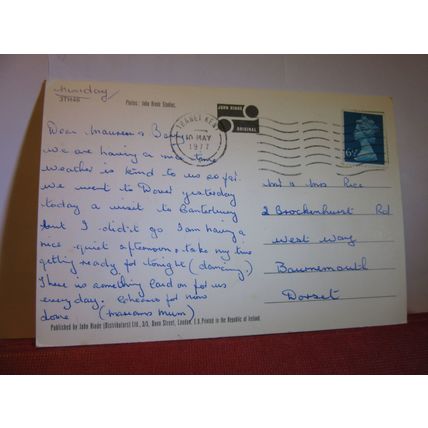 Monday
Photos: John Hinde Studios.
JOHN HINDE
ORIGINAL
THANET KENT
10 MAY
1977
6½P
Dear Maureen & Barry
we are having a nice time
weather is kind to us so far.
we went to Dover yesterday
today a visit to Canterbury
but I didn't go I am having a
nice quiet afternoon & take my time
getting ready for tonight (dancing.)
There is something laid on for us
everyday. Cheerio for now
love (Mum)
Mr & Mrs Rice
2 Brockenhurst Rd
West Way
Bournemouth
Dorset
Published by John Hinde (Distributors) Ltd., Dean Street, London, Printed in the Republic of Ireland.